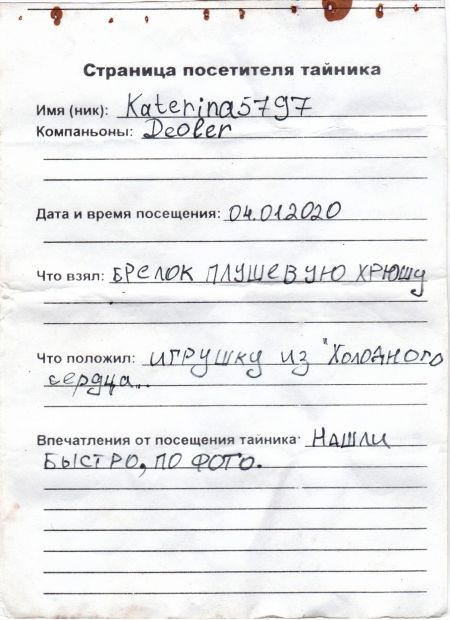 Страница посетителя тайника
Имя (ник): Katerina5797
Компаньоны: Deoler
Дата и время посещения: 04.01.2020
Что взял: БРЕЛОК ПЛУШЕВУЮ ХРЮШУ
Что положил: ИГРУШКУ ИЗ "Холодного
сердца..
Впечатления от посещения тайника: НАШЛИ
БЫСТРО, ПО ФОТО.